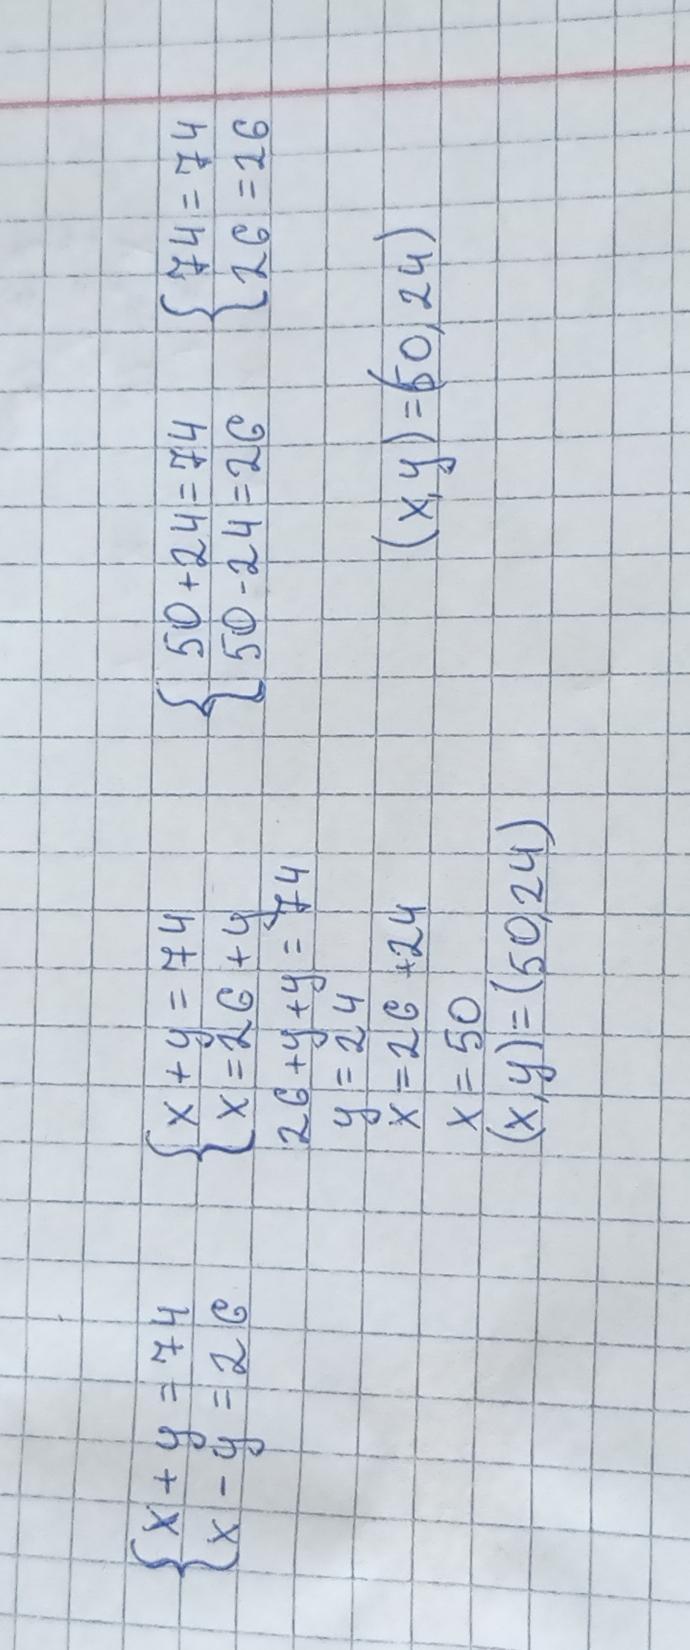 { x + y = 74
{ x - y = 26
{ x + y = 74
{ x = 26 + y
26 + y + y = 74
y = 24
x = 26 + 24
x = 50
(x, y) = (50, 24)
{ 50 + 24 = 74
{ 50 - 24 = 26
{ 74 = 74
{ 26 = 26
(x, y) = (50, 24)